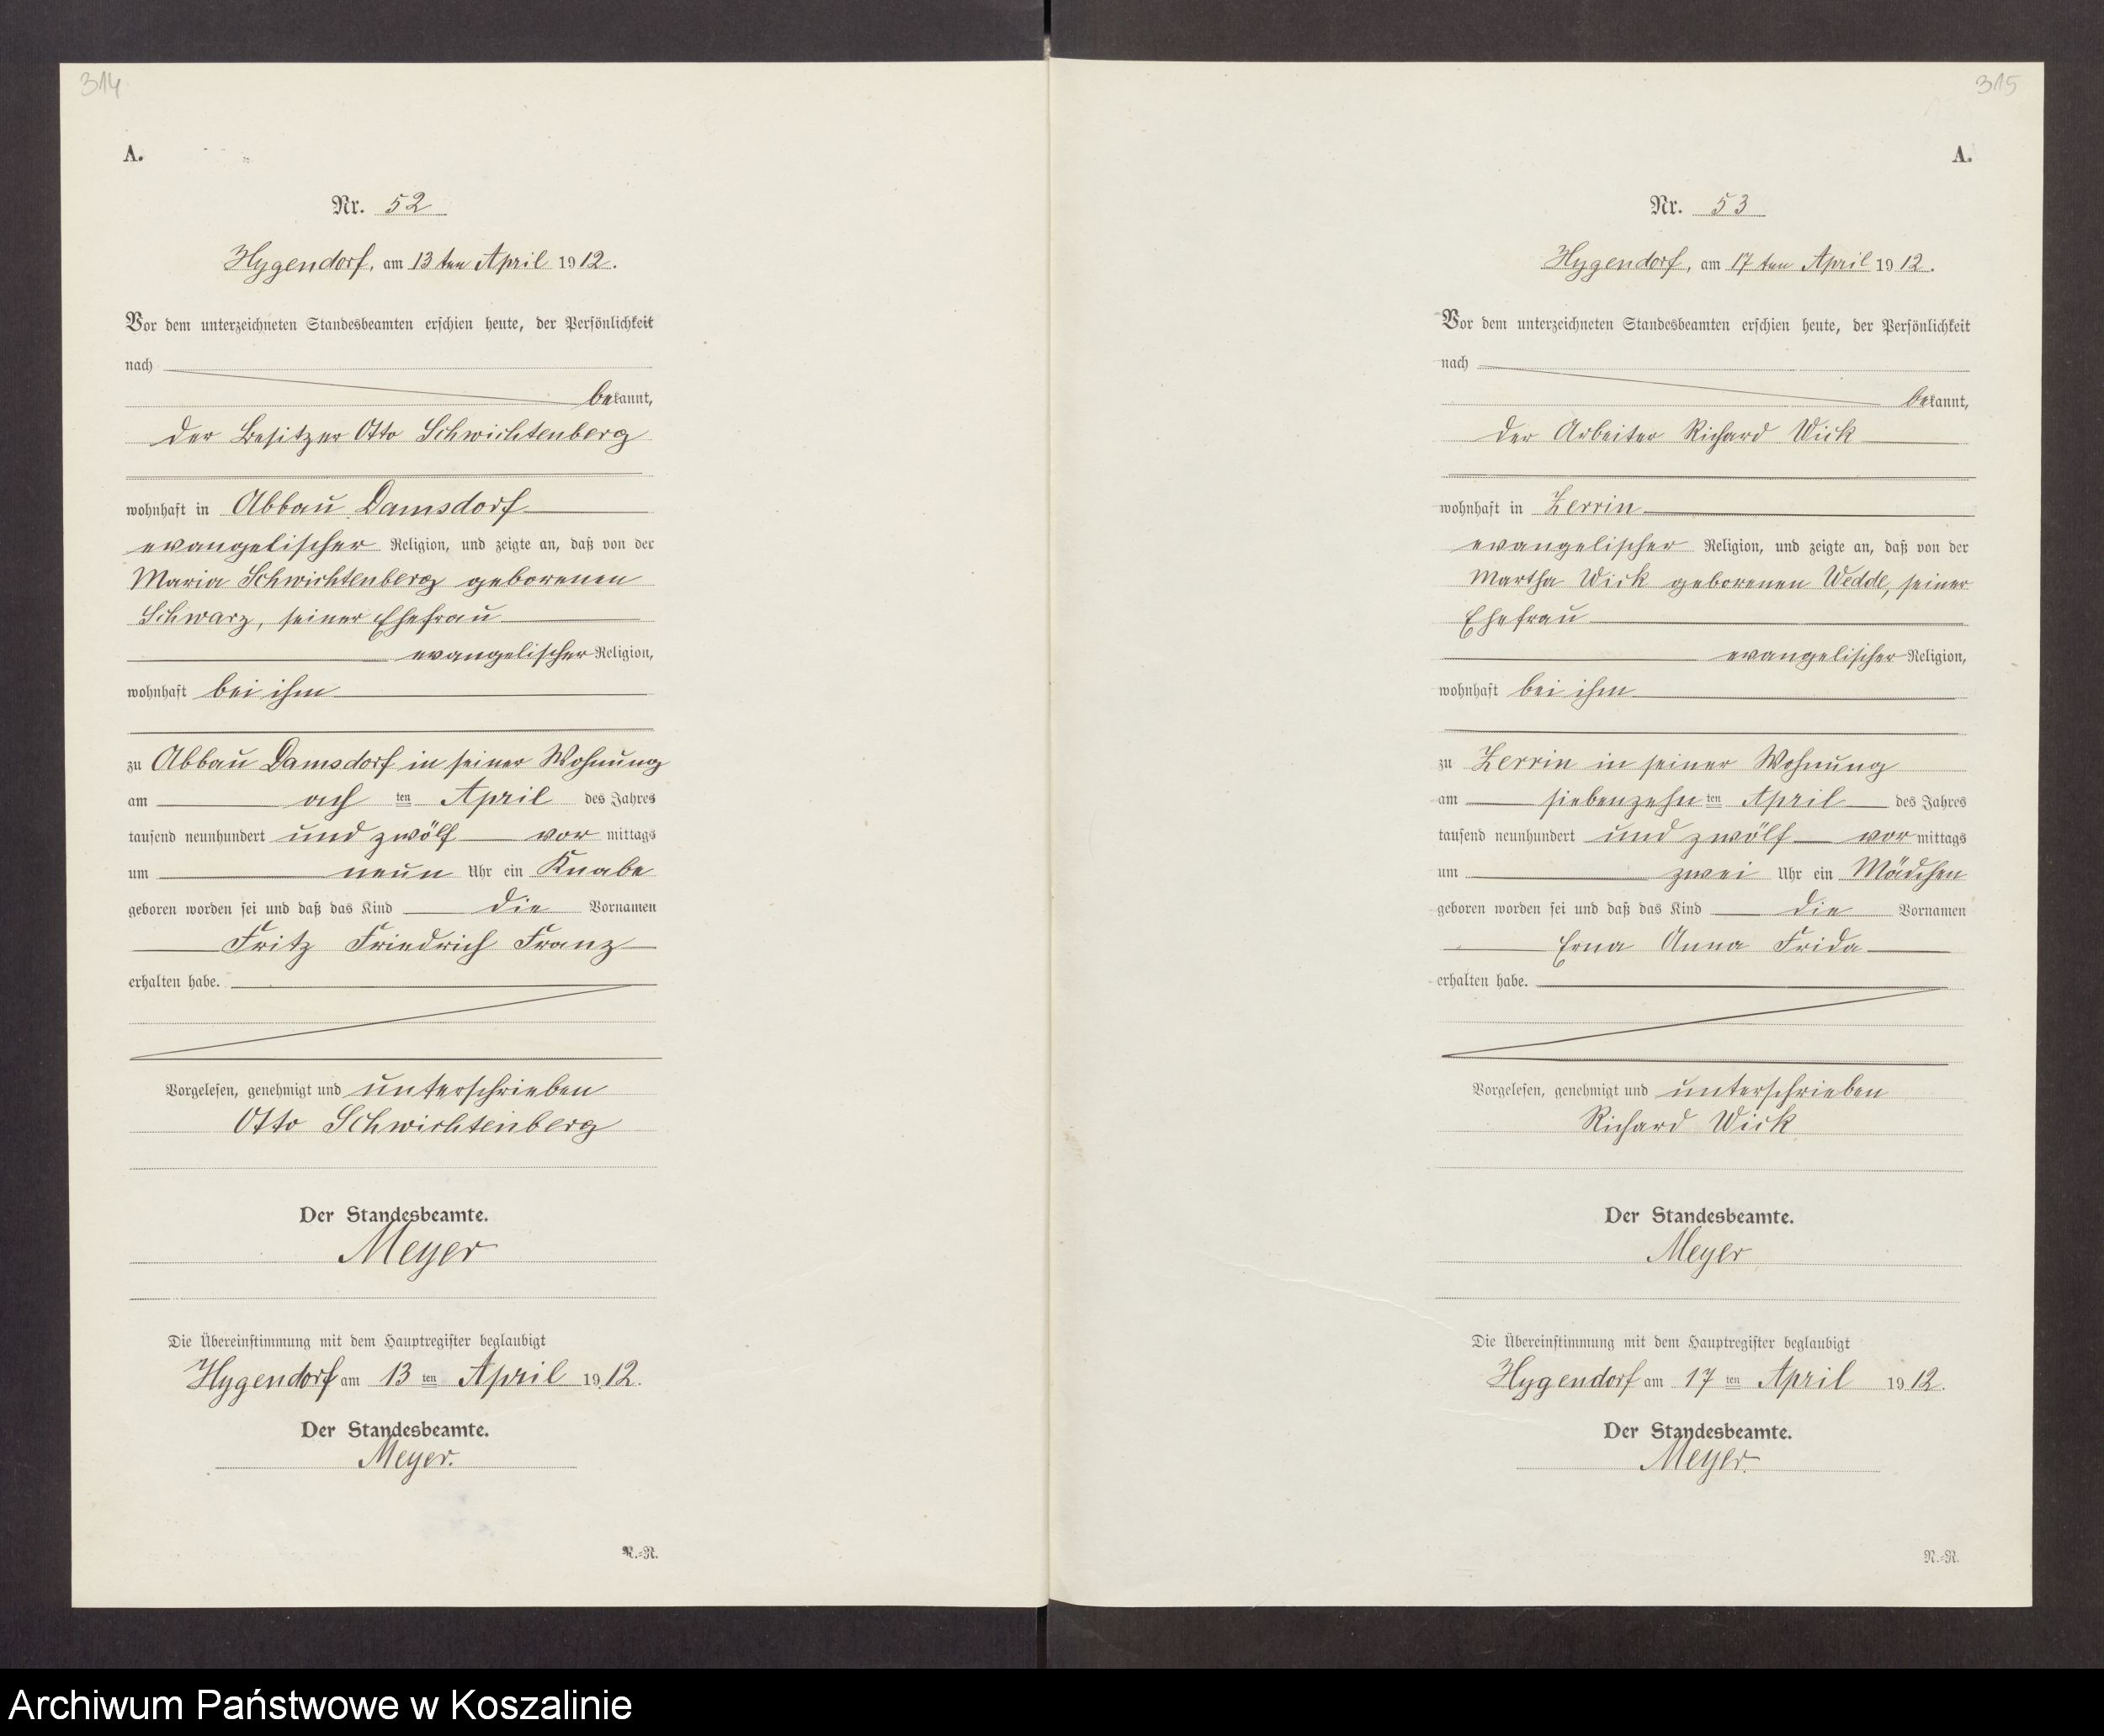 314
A.
Nr. 52
Hygendorf, am 13ten April 1912.
Vor dem unterzeichneten Standesbeamten erschien heute, der Persönlichkeit
nach
bekannt,
der Besitzer Otto Schwichtenberg
wohnhaft in Abbau Damsdorf
evangelischer Religion, und zeigte an, daß von der
Maria Schwichtenberg geborenen
Schwarz, seiner Ehefrau
evangelischer Religion,
wohnhaft bei ihm
zu Abbau Damsdorf in seiner Wohnung
am ach ten April des Jahres
tausend neunhundert und zwölf vor mittags
um neun Uhr ein Knabe
geboren worden sei und daß das Kind die Vornamen
Fritz Friedrich Franz
erhalten habe.
Vorgelesen, genehmigt und unterschrieben
Otto Schwichtenberg
Der Standesbeamte.
Meyer
Die Übereinstimmung mit dem Hauptregister beglaubigt
Hygendorf am 13 ten April 1912.
Der Standesbeamte.
Meyer.
N.-R.
315
A.
Nr. 53
Hygendorf, am 17ten April 1912.
Vor dem unterzeichneten Standesbeamten erschien heute, der Persönlichkeit
nach
bekannt,
der Arbeiter Richard Wick
wohnhaft in Zerrin
evangelischer Religion, und zeigte an, daß von der
Martha Wick geborenen Wedde, seiner
Ehefrau
evangelischer Religion,
wohnhaft bei ihm
zu Zerrin in seiner Wohnung
am siebenzehn ten April des Jahres
tausend neunhundert und zwölf vor mittags
um zwei Uhr ein Mädchen
geboren worden sei und daß das Kind die Vornamen
Erna Anna Frida
erhalten habe.
Vorgelesen, genehmigt und unterschrieben
Richard Wick
Der Standesbeamte.
Meyer
Die Übereinstimmung mit dem Hauptregister beglaubigt
Hygendorf am 17 ten April 1912.
Der Standesbeamte.
Meyer.
N.-R.
Archiwum Państwowe w Koszalinie